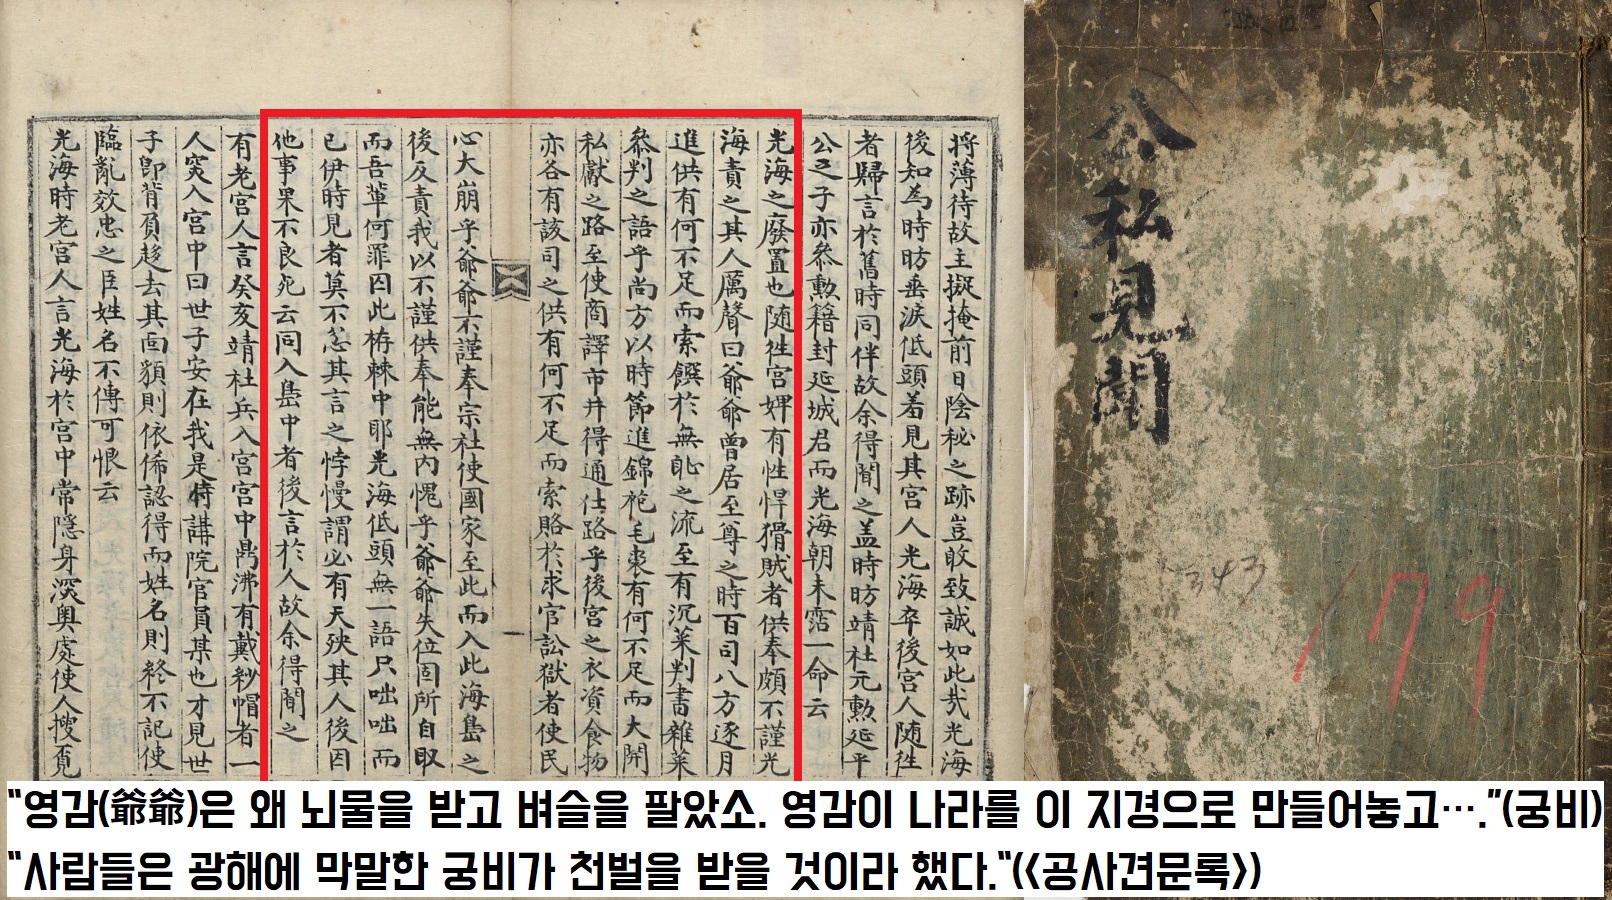 將薄待故主擬掩前日陰秘之跡豈敢致誠如此哉光海
後知為時昉垂淚低頭着見其宮人光海卒後宮人随往
者歸言於舊時同伴故余得聞之盖時昉靖社元勲延平
公之子亦參勲籍封延城君而光海朝未霑一命云
光海之廢置也随徃宮婢有性悍猾賊者供奉頗不謹光
海責之其人厲聲曰爺爺曾居至尊之時百司八方逐月
進供有何不足而索饌於無恥之流至有沉菜判書雜菜
參判之語乎尚方以時節進錦袍毛裘有何不足而大開
私獻之路至使商譯市井得通仕路乎後宮之衣資食物
亦各有該司之供有何不足而索賂於求官訟獄者使民
心大崩乎爺爺不謹奉宗社使國家至此而入此海島之
後反責我以不謹供奉能無內愧乎爺爺失位固所自取
而吾輩何罪因此栫棘中耶光海低頭無一語只咄咄而
已伊時見者莫不忿其言之悖慢謂必有天殃其人後因
他事果不良死云同入島中者後言於人故余得聞之
有老宮人言癸亥靖社兵入宮宮中鼎沸有戴紗帽者一
人突入宮中曰世子安在我是侍講院官員某也才見世
子卽背負趍去其面貌則依俙認得而姓名則終不記使
臨亂效忠之臣姓名不傳可恨云
光海時老宮人言光海於宮中常隱身深奧處使人搜覓
公私見聞
343
179
"영감(爺爺)은 왜 뇌물을 받고 벼슬을 팔았소. 영감이 나라를 이 지경으로 만들어놓고…."(궁비)
"사람들은 광해에 막말한 궁비가 천벌을 받을 것이라 했다."(<공사견문록>)